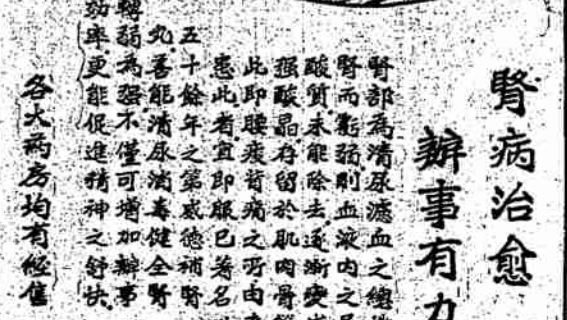 腎病治愈
辦事有力
腎部為清尿濾血之總
腎而虧弱則血液內之尿
酸質未能除去逐漸變
强酸晶存留於肌肉骨
此即腰痠背痛之所由
患此者宜即服已著名
五十餘年之第威德補腎
丸善能清尿消毒健全腎
轉弱為强不僅可增加辦事
効率更能促進精神之舒快
各大药房均有經售